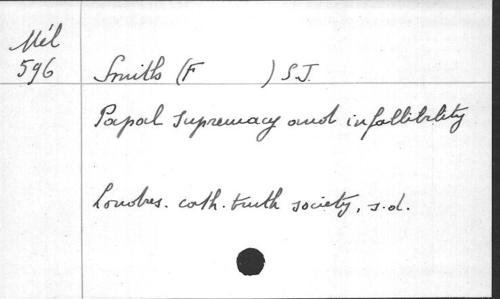 Mél
596
Smith (F ) S.J.
Papal supremacy and infallibility
Londres. cath. truth society, s.d.